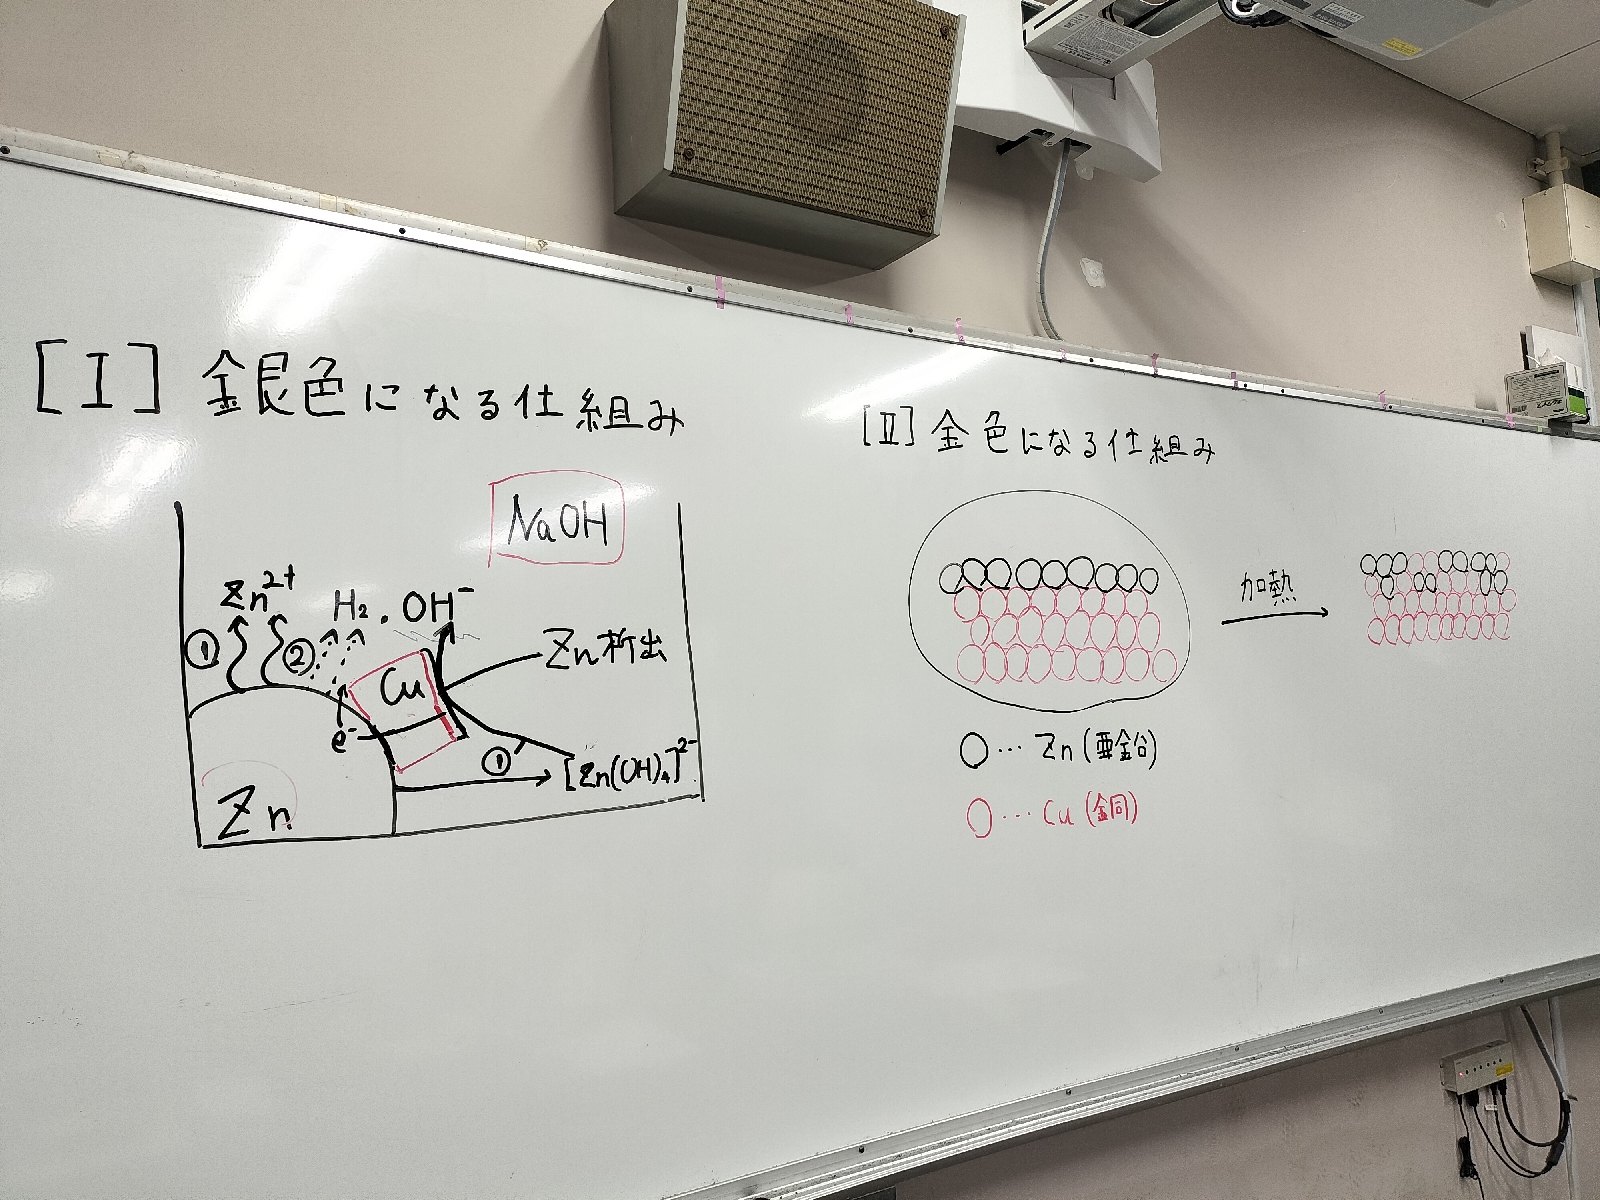 [I] 銀色になる仕組み
NaOH
Zn²⁺
H₂ . OH⁻
① ②
Cu
Zn析出
e⁻
①'
[Zn(OH)₄]²⁻
Zn
[II] 金色になる仕組み
加熱
○…Zn(亜鉛)
○…Cu(銅)